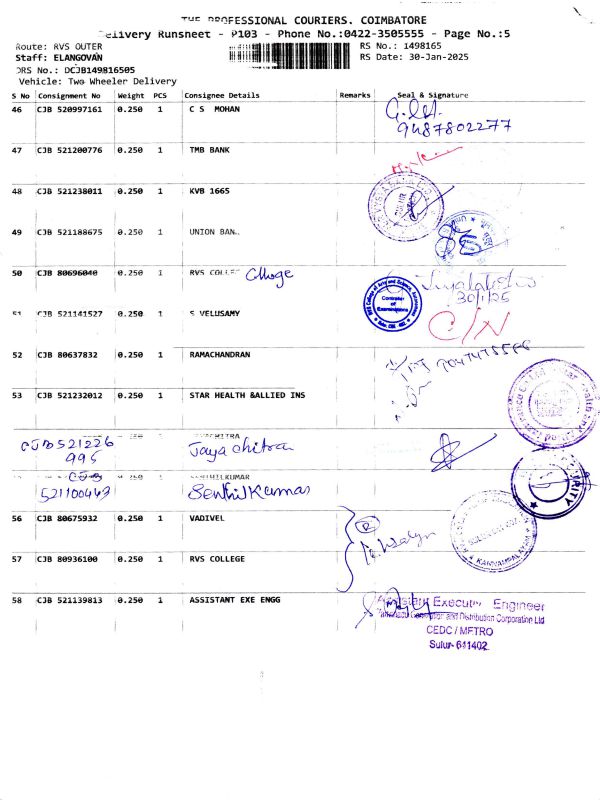 THE PROFESSIONAL COURIERS, COIMBATORE
Delivery Runsheet - P103 - Phone No.:0422-3505555 - Page No.:5
Route: RVS OUTER
RS No.: 1498165
Staff: ELANGOVAN
RS Date: 30-Jan-2025
DRS No.: DCJB149816505
Vehicle: Two Wheeler Delivery
S No Consignment No Weight PCS Consignee Details Remarks Seal & Signature
46 CJB 520997161 0.250 1 C S MOHAN
9487802277
47 CJB 521200776 0.250 1 TMB BANK
48 CJB 521238011 0.250 1 KVB 1665
49 CJB 521188675 0.250 1 UNION BAN
50 CJB 80696040 0.250 1 RVS COLLEG College
30/1/25
Controller of Examinations
51 CJB 521141527 0.250 1 S VELUSAMY
C/N
52 CJB 80637832 0.250 1 RAMACHANDRAN
53 CJB 521232012 0.250 1 STAR HEALTH &ALLIED INS
CJB 521226 995 Jaya chitra
CJB 521100463 SENTHILKUMAR
Senthil Kumar
56 CJB 80675932 0.250 1 VADIVEL
KANNAMPALAYAM
57 CJB 80936100 0.250 1 RVS COLLEGE
58 CJB 521139813 0.250 1 ASSISTANT EXE ENGG
Assistant Executive Engineer
Generation and Distribution Corporation Ltd
CEDC / METRO
Sulur-641402